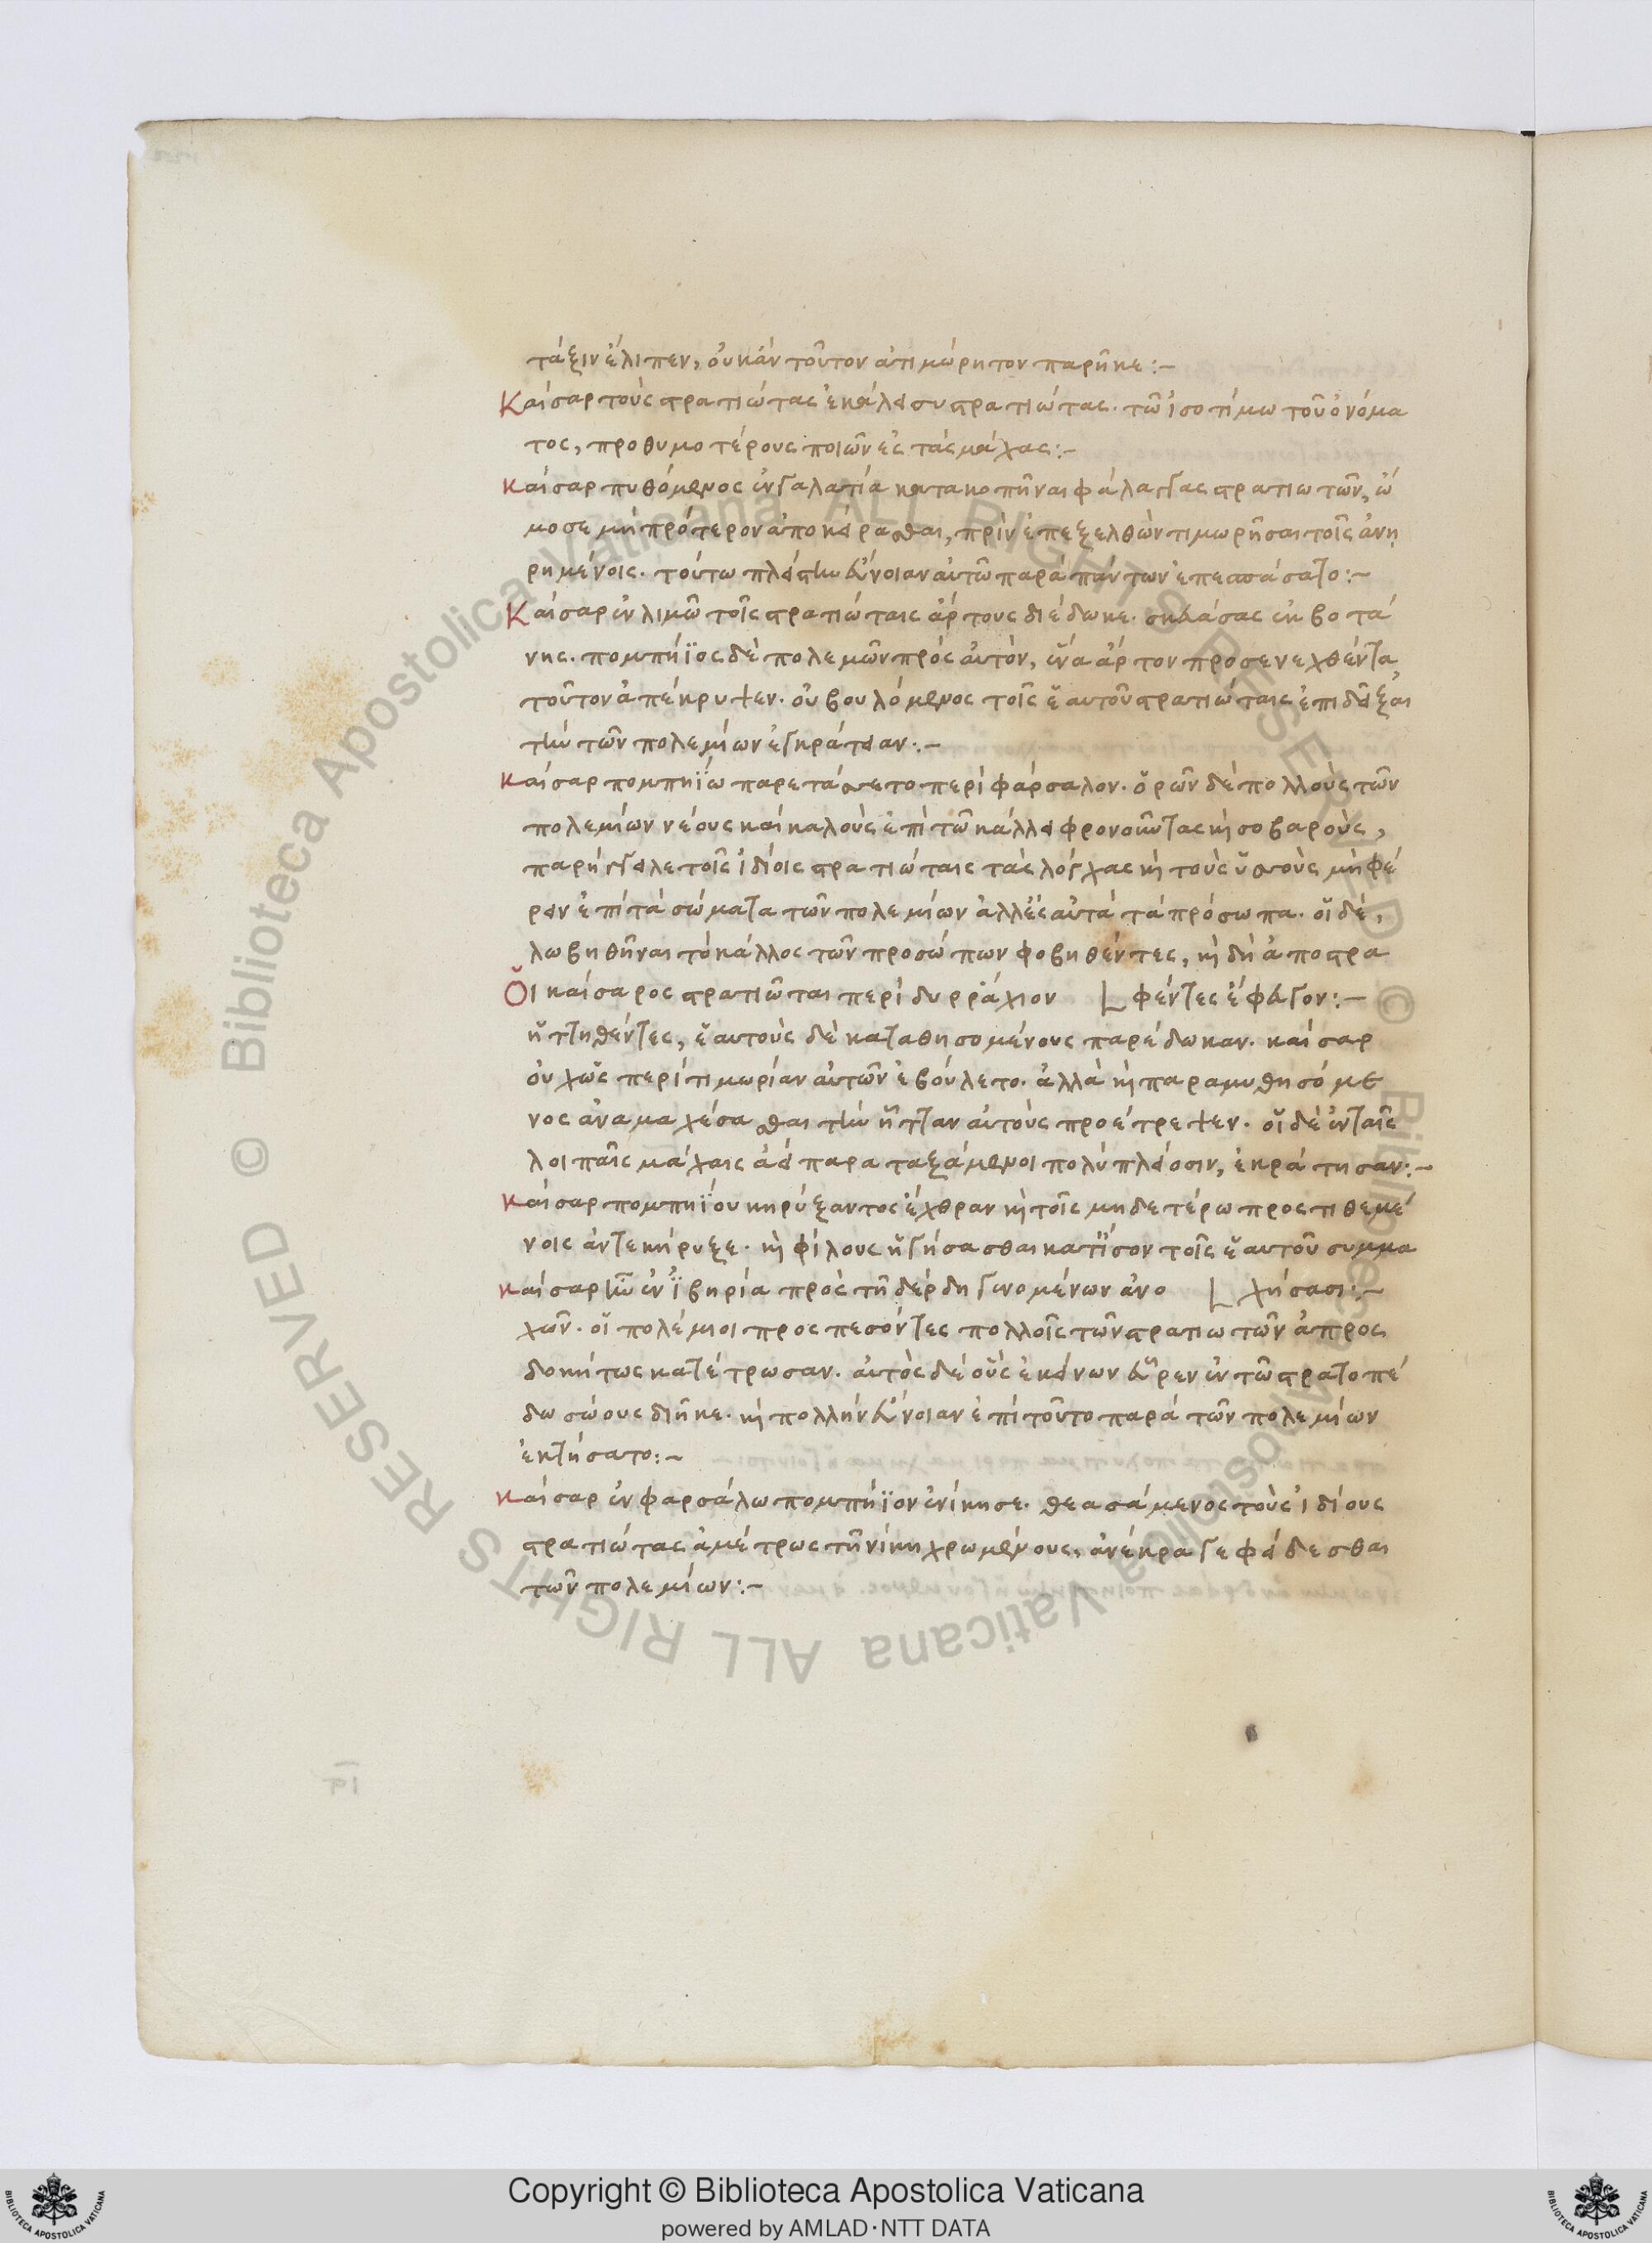 τάξιν ἔλιπεν, οὐκἂν τοῦτον ἀτιμώρητον παρῆκε:~
Καῖσαρ τοὺς στρατιώτας ἐκάλει συστρατιώτας. τῶ ἰσοτίμω τοῦ ὀνόμα
τος, προθυμοτέρους ποιῶν ἐς τὰς μάχας:~
καῖσαρ πυθόμενος ἐν γαλατία κατακοπῆναι φάλαγγας στρατιωτῶν, ὤ
μοσε μὴ πρότερον ἀποκείρασθαι, πρὶν ἐπεξελθὼν τιμωρῆσαι τοῖς ἀνη
ρημένοις. τούτω πλείστην εὔνοιαν αὐτῶ παρὰ πάντων ἐπεσπάσατο:~
Καῖσαρ ἐν λιμῶ τοῖς στρατιώταις ἄρτους διέδωκε. σκευάσας ἐκ βοτά
νης. πομπήϊος δὲ πολεμῶν πρὸς αὐτὸν, ἕνα ἄρτον προσενεχθέντα
τοῦτον ἀπέκρυψεν. οὐ βουλόμενος τοῖς ἑαυτοῦ στρατιώταις ἐπιδεῖξαι
τὴν τῶν πολεμίων ἐγκράτειαν:~
καῖσαρ πομπηΐω παρετάσσετο περὶ φάρσαλον. ὁρῶν δὲ πολλοὺς τῶν
πολεμίων νέους καὶ καλοὺς ἐπὶ τῶ κάλλει φρονοῦντας καὶ σοβαροὺς,
παρήγγειλε τοῖς ἰδίοις στρατιώταις τὰς λόγχας καὶ τοὺς ὑσσοὺς μὴ φέ
ρειν ἐπὶ τὰ σώματα τῶν πολεμίων ἀλλ' ἐς αὐτὰ τὰ πρόσωπα. οἱ δὲ,
λωβηθῆναι τὸ κάλλος τῶν προσώπων φοβηθέντες, ἤδη ἀποστρα
Οἱ καίσαρος στρατιῶται περὶ δυρράχιον ⌊ φέντες ἔφευγον:~
ἡττηθέντες, ἑαυτοὺς δεκατευθησομένους παρέδωκαν. καῖσαρ
οὐχ ὡς περὶ τιμωρίαν αὐτῶν ἐβούλετο. ἀλλὰ καὶ παραμυθησόμε
νος ἀναμαχέσασθαι τὴν ἧτταν αὐτοὺς προέτρεψεν. οἱ δὲ ἐν ταῖς
λοιπαῖς μάχαις ἀεὶ παραταξάμενοι πολὺ πλείοσιν, ἐκράτησαν:~
καῖσαρ πομπηΐου κηρύξαντος ἔχθραν καὶ τοῖς μηδετέρω προστιθεμέ
νοις ἀντεκήρυξε. καὶ φίλους ἡγήσασθαι κατ' ἴσον τοῖς ἑαυτοῦ συμμα
καῖσαρ ἦν ἐν ἰβηρία πρὸς τῆ δέρδη γινομένων ἀνο ⌊ χήσασι:~
χῶν. οἱ πολέμιοι προσπεσόντες πολλοῖς τῶν στρατιωτῶν ἀπροσ
δοκήτως κατέτρωσαν. αὐτὸς δὲ οὓς ἐκείνων εὗρεν ἐν τῶ στρατοπέ
δω σώους διῆκε. καὶ πολλὴν εὔνοιαν ἐπὶ τοῦτο παρὰ τῶν πολεμίων
ἐκτήσατο:~
καῖσαρ ἐν φαρσάλω πομπήϊον ἐνίκησε. θεασάμενος τοὺς ἰδίους
στρατιώτας ἀμέτρως τῆ νίκη χρωμένους, ἀνέκραγε φείδεσθαι
τῶν πολεμίων:~
© Biblioteca Apostolica Vaticana ALL RIGHTS RESERVED © Biblioteca Apostolica Vaticana ALL RIGHTS RESERVED
Copyright © Biblioteca Apostolica Vaticana
powered by AMLAD·NTT DATA
BIBLIOTECA APOSTOLICA VATICANA
BIBLIOTECA APOSTOLICA VATICANA